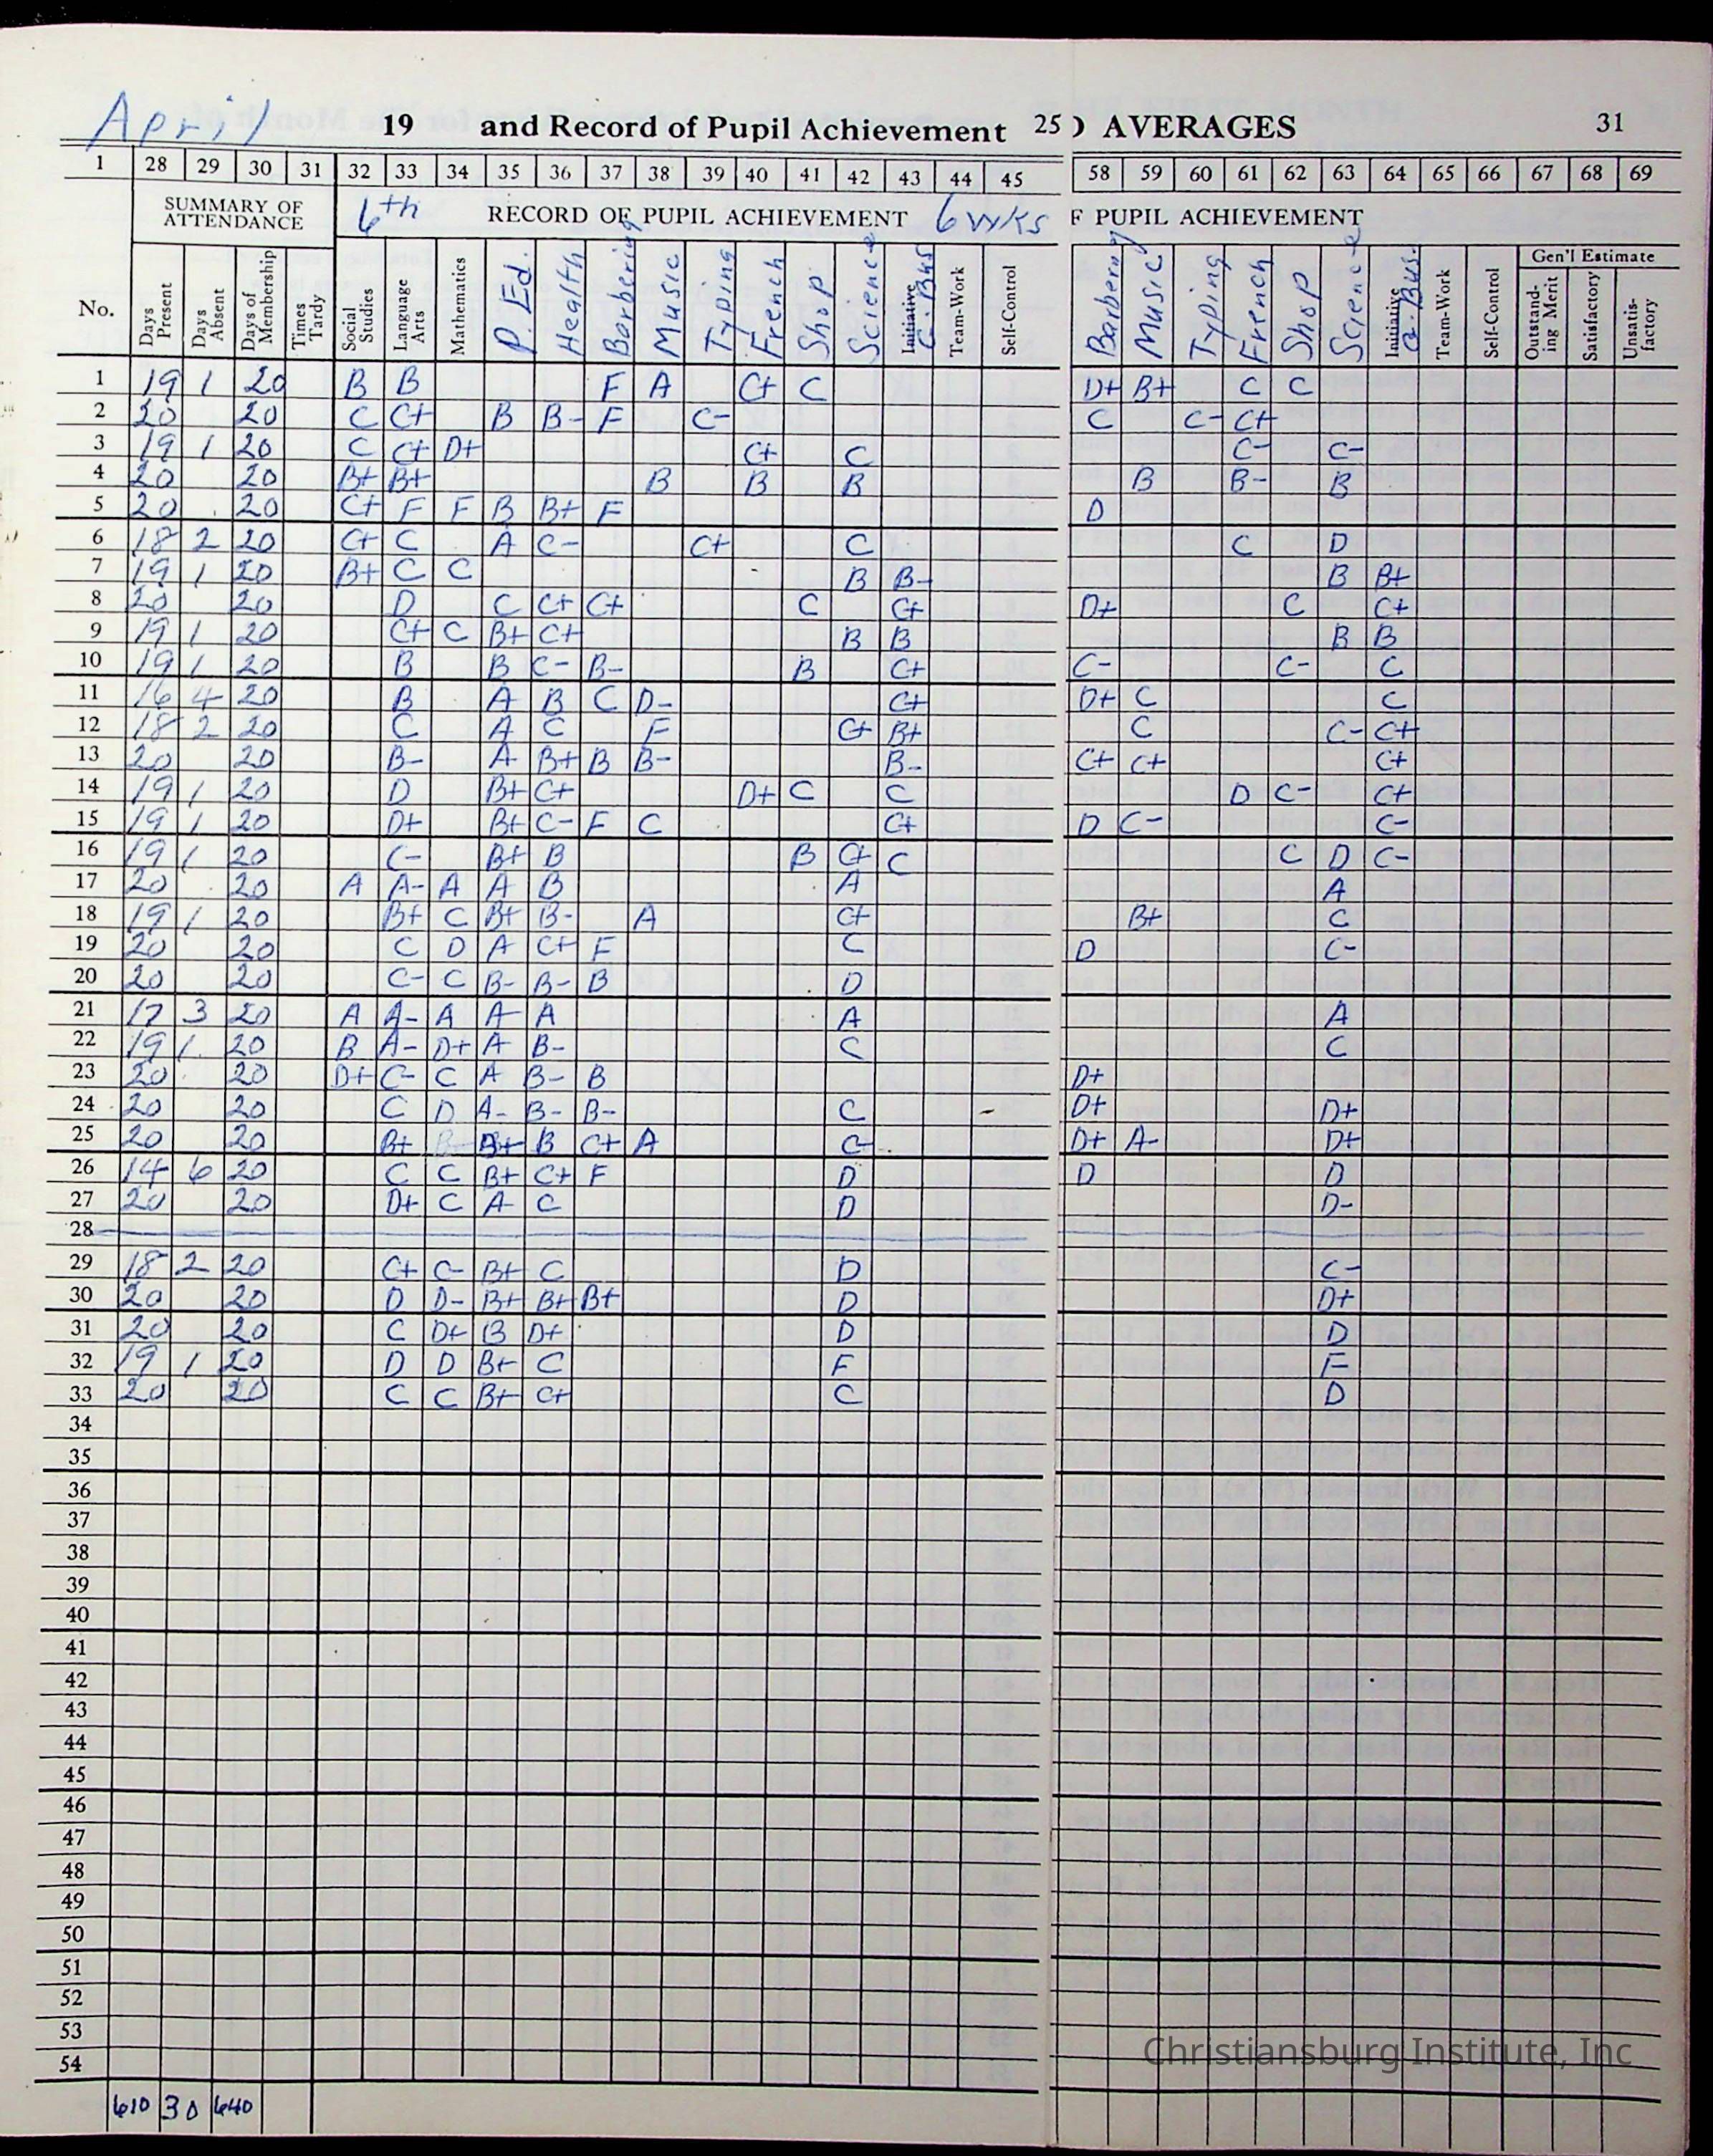 April 19 and Record of Pupil Achievement 25 AVERAGES 31
1 28 29 30 31 32 33 34 35 36 37 38 39 40 41 42 43 44 45 58 59 60 61 62 63 64 65 66 67 68 69
SUMMARY OF ATTENDANCE 6th RECORD OF PUPIL ACHIEVEMENT 6 wks F PUPIL ACHIEVEMENT
Gen'l Estimate
No. Days Present Days Absent Days of Membership Times Tardy Social Studies Language Arts Mathematics P. Ed. Health Barbering Music Typing French Shop Science Initiative G. Bus Team-Work Self-Control Barbery Music Typing French Shop Science Initiative G. Bus. Team-Work Self-Control Outstanding Merit Satisfactory Unsatisfactory
1 19 1 20 B B F A C+ C D+ B+ C C
2 20 20 C C+ B B- F C- C C- C+
3 19 1 20 C C+ D+ C+ C C- C-
4 20 20 B+ B+ B B B B B- B
5 20 20 C+ F F B B+ F D
6 18 2 20 C+ C A C- C+ C C D
7 19 1 20 B+ C C B B- B B+
8 20 20 D C C+ C+ C C+ D+ C C+
9 19 1 20 C+ C B+ C+ B B B B
10 19 1 20 B B C- B- B C+ C- C- C
11 16 4 20 B A B C D- C+ D+ C C
12 18 2 20 C A C F C+ B+ C C- C+
13 20 20 B- A B+ B B- B- C+ C+ C+
14 19 1 20 D B+ C+ D+ C C D C- C+
15 19 1 20 D+ B+ C- F C C+ D C- C-
16 19 1 20 C- B+ B B C+ C C D C-
17 20 20 A A- A A B A A
18 19 1 20 B+ C B+ B- A C+ B+ C
19 20 20 C D A C+ F C D C-
20 20 20 C- C B- B- B D
21 17 3 20 A A- A A A A A
22 19 1 20 B A- D+ A B- C C
23 20 20 D+ C- C A B- B D+
24 20 20 C D A- B- B- C D+ D+
25 20 20 B+ B+ B C+ A C- D+ A- D+
26 14 6 20 C C B+ C+ F D D D
27 20 20 D+ C A C D D-
28
29 18 2 20 C+ C- B+ C D C-
30 20 20 D D- B+ B+ B+ D D+
31 20 20 C D+ B D+ D D
32 19 1 20 D D B+ C F F
33 20 20 C C B+ C+ C D
34
35
36
37
38
39
40
41
42
43
44
45
46
47
48
49
50
51
52
53
54
610 30 640
Christiansburg Institute, Inc